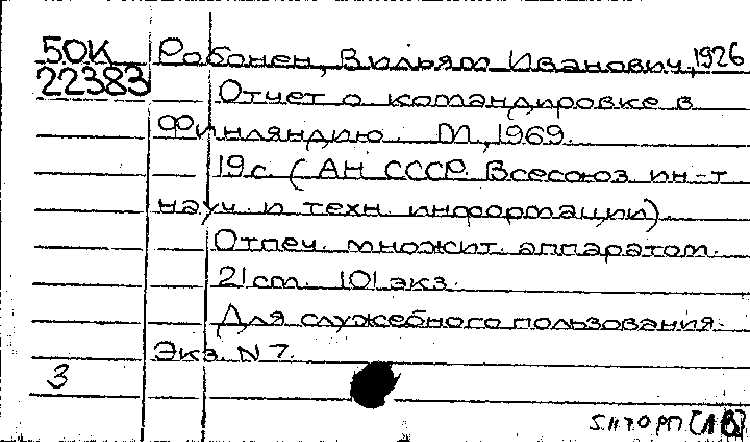 50К Робонен, Вильям Иванович, 1926
22383
Отчет о командировке в
Финляндию. М., 1969.
19с. (АН СССР. Всесоюз ин-т
науч. и техн. информации)
Отпеч. множит. аппаратом.
21см. 101 экз.
Для служебного пользования.
Экз. N 7.
3